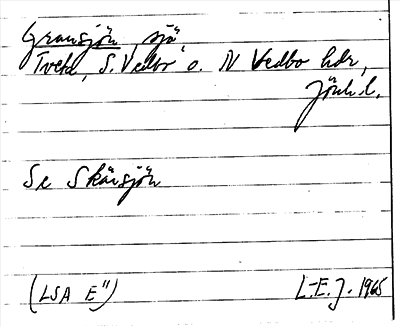 Gransjön, sjö
Tveta, S. Vedbo o. N Vedbo hdr,
Jönk. l.
Se Skärsjön
(LSA E")
L-E. J. 1965